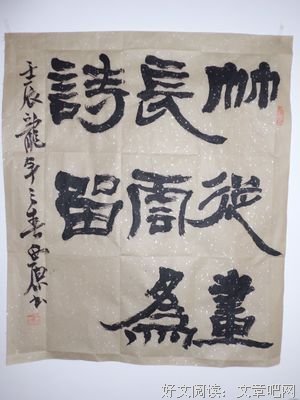 竹從畫
長雲為
詩留
壬辰龍年之春書
好文阅读：文章吧网